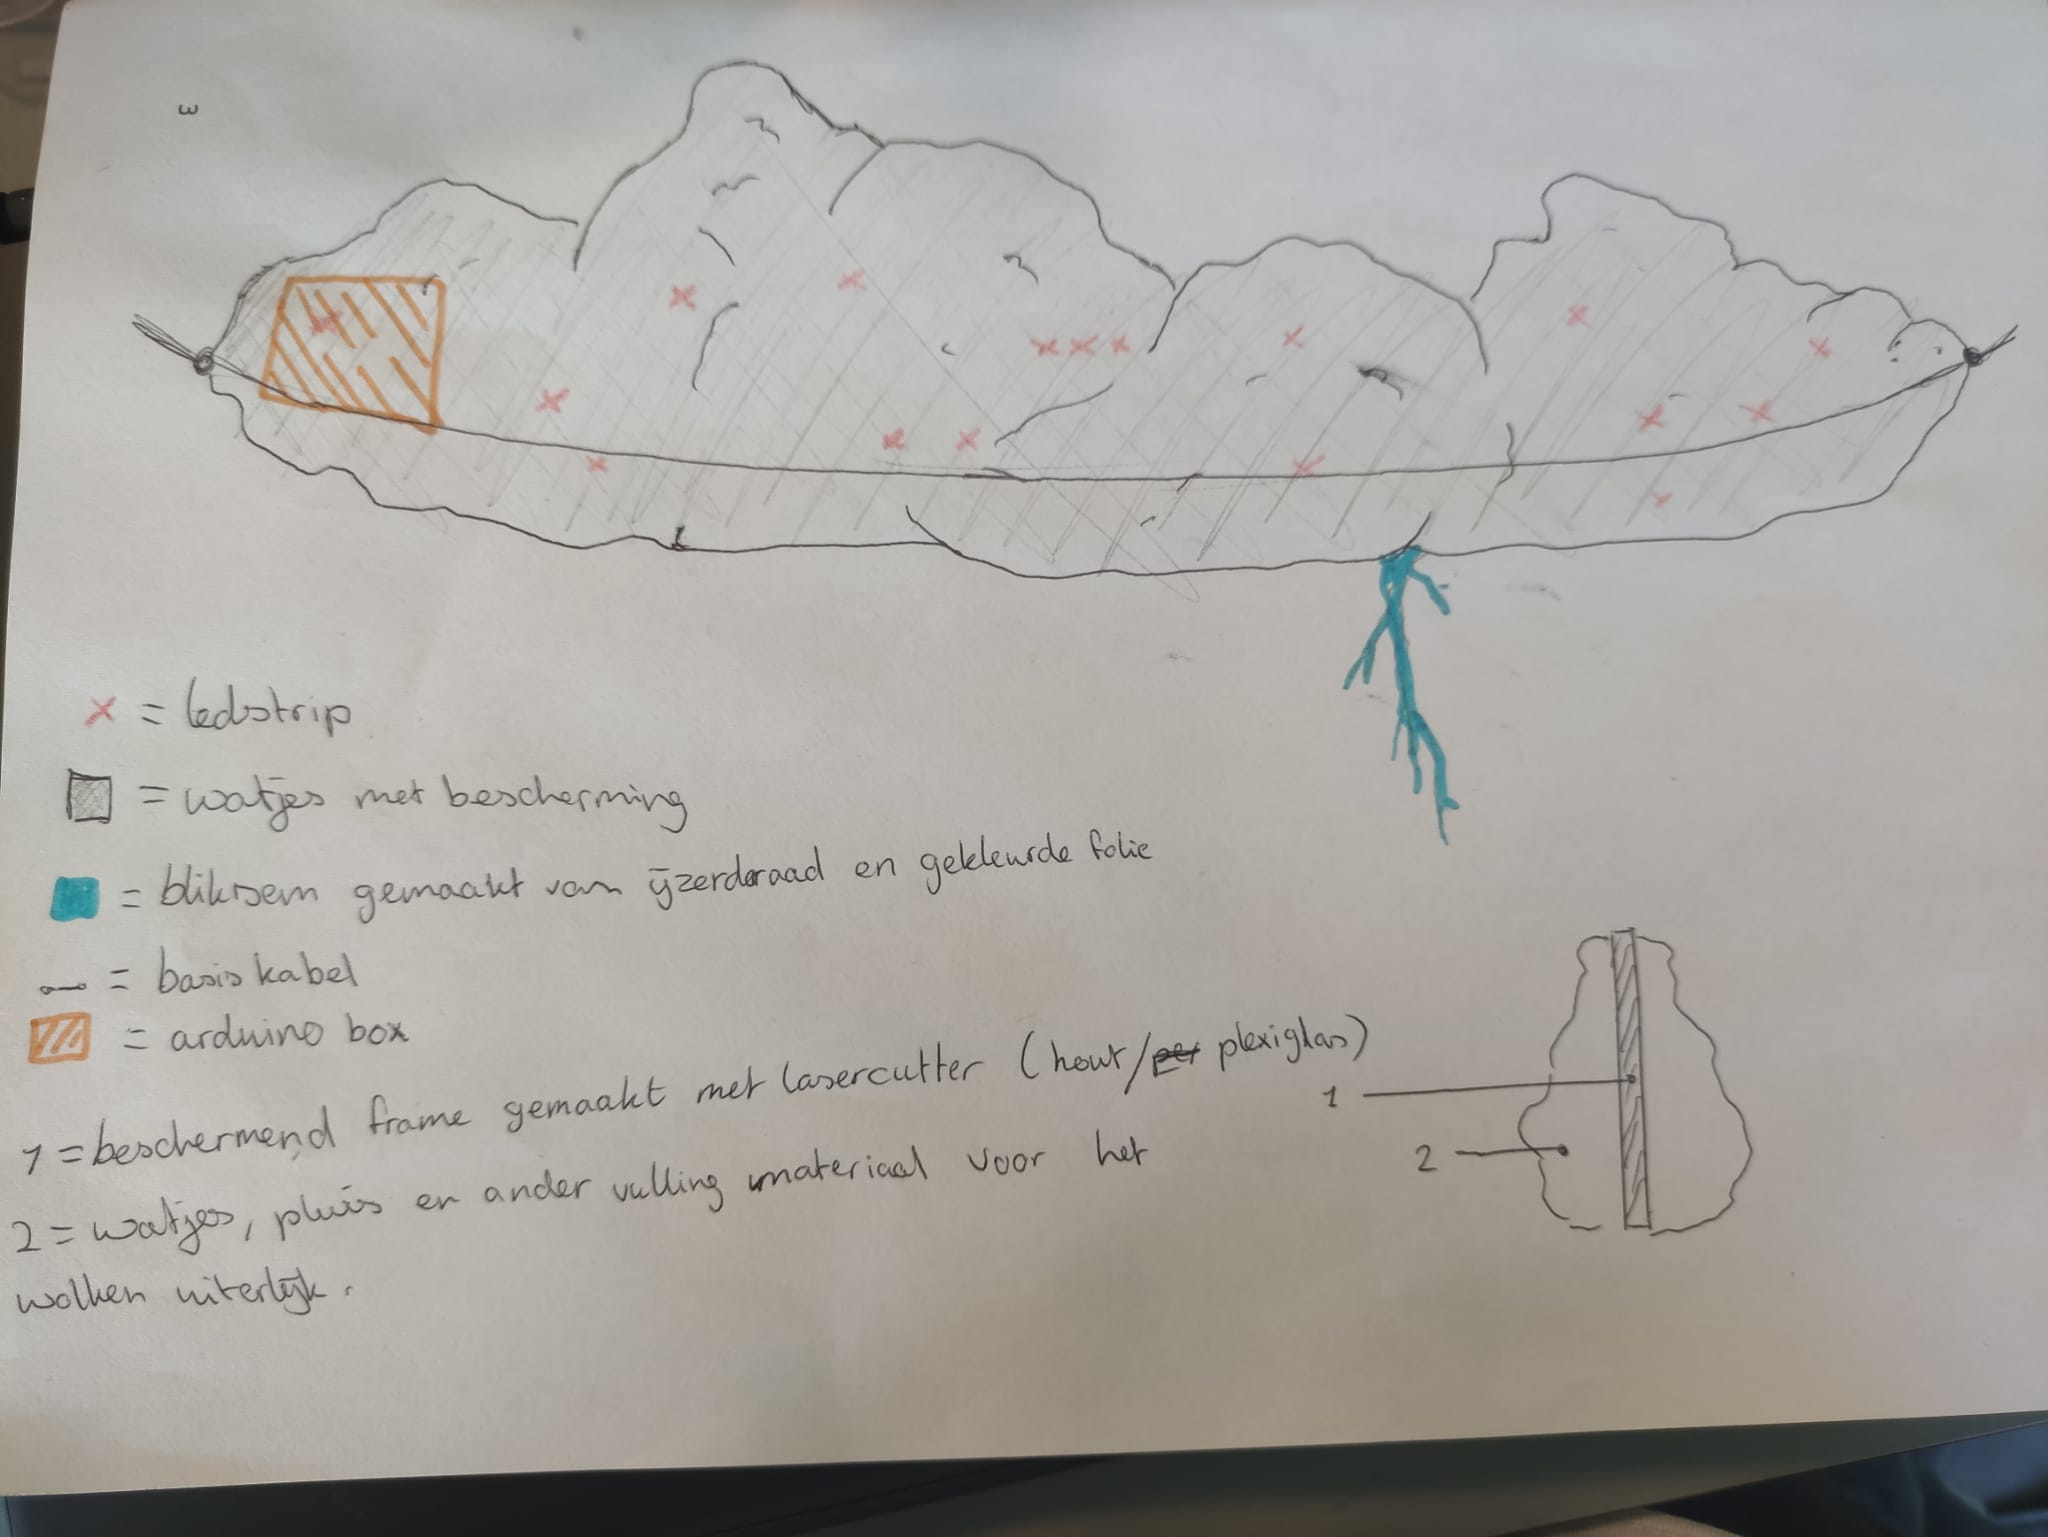 3
x = ledstrip
= watjes met bescherming
= bliksem gemaakt van ijzerdraad en gekleurde folie
= basis kabel
= arduino box
1 = beschermend frame gemaakt met lasercutter (hout/ plexiglas)
1
2 = watjes, pluis en ander vulling materiaal voor het
2
wolken uiterlijk.